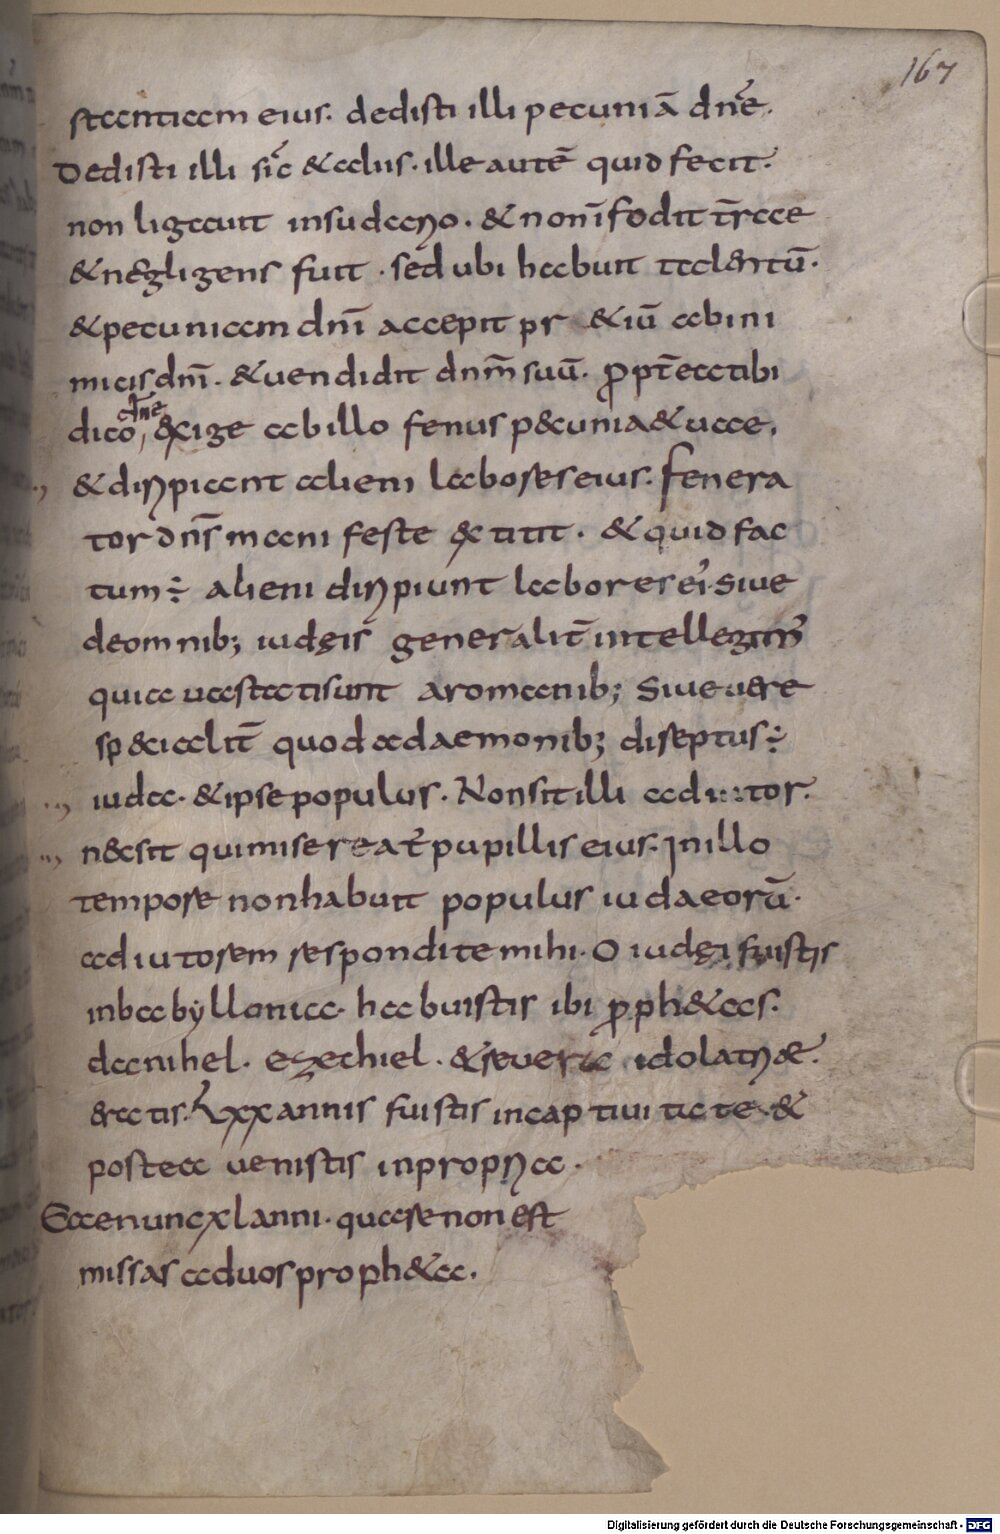 167
stantiam eius. dedisti illi pecuniā dn̄e.
Dedisti illi sic̄ & aliis. ille autē quid fecit.
non ligauit in sudario. & non īfodit t̄rae
& neglegens fuit. sed ubi habuit talentū.
& pecuniam dn̄i accepit pr & iū ab ini
micis dn̄i. & uendidit dnm̄ suū. propt̄ea tibi
dico, dn̄e exige ab illo fenus pecunia & uae,
& diripiant alieni labores eius. fenera
tor dn̄s mani feste extitit. & quid fac
tum ÷ alieni diripiunt labores ei'. Siue
de omnib; iudęis generalit̄ intellegim'
quia uastati sunt a romanib; Siue uere
specialit̄ quod a daemonib; diseptus ÷
iuda. & ipse populus. Non sit illi adiutor.
nec sit qui misereat' pupillis eius. In illo
tempore non habuit populus iudaeorū.
adiutorem respondite mihi. O iudęi fuistis
in babyllonia. habuistis ibi prophetas.
danihel. ezechiel. & reuera idolatriae.
eratis. Lxx annis fuistis in captiuitate. &
postea uenistis in propria.
Ecce nunc xl anni. quare non est
missas ad uos propheta.
Digitalisierung gefördert durch die Deutsche Forschungsgemeinschaft - DFG